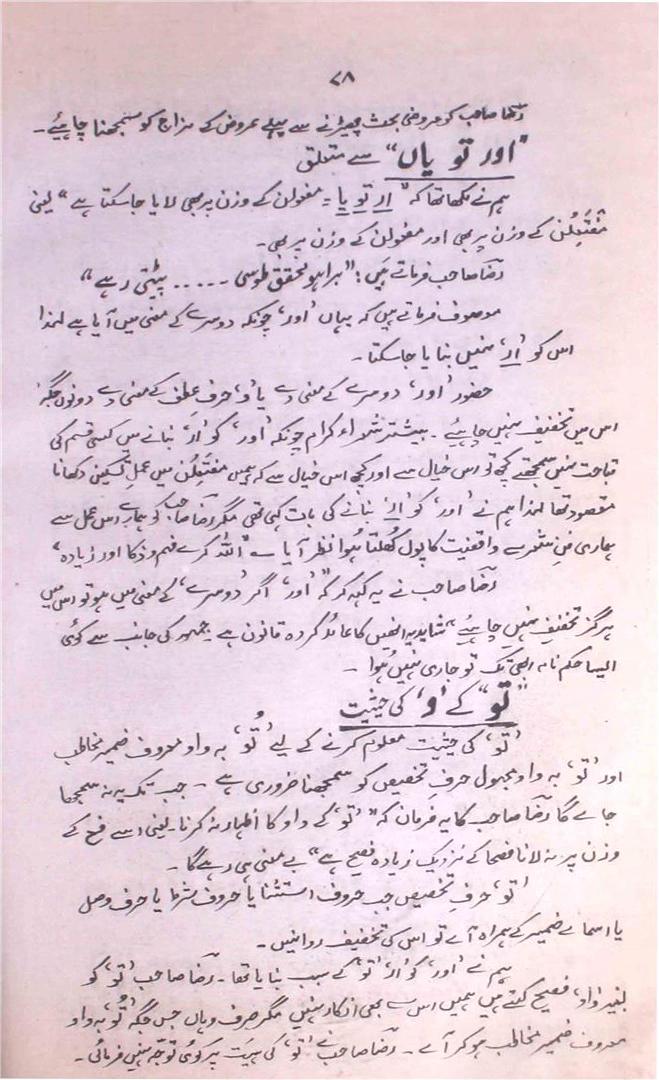 ۷۸
رضا صاحب کو عروضی بحث چھیڑنے سے پہلے عروض کے مزاج کو سمجھنا چاہیئے۔
"اور تو یاں" سے متعلق
ہم نے لکھا تھا کہ "اَر تو یا = مفعولن کے وزن پر بھی لایا جاسکتا ہے" یعنی
مُفْتَعِلُن کے وزن پر بھی اور مفعولن کے وزن پر بھی۔
رضا صاحب فرماتے ہیں: "برا ہو محقق طوسی ۔۔۔۔۔ پیٹتی رہے"
موصوف فرماتے ہیں کہ یہاں 'اور' چونکہ دوسرے کے معنی میں آیا ہے لہٰذا
اس کو 'اَر' نہیں بنایا جاسکتا۔
حضور 'اور' دوسرے کے معنی دے یا 'و' حرف عطف کے معنی دے دونوں جگہ
اس میں تخفیف نہیں چاہیئے۔ بیشتر شعراء کرام چونکہ 'اور' کو 'اَر' بنانے میں کسی قسم کی
قباحت نہیں سمجھتے کچھ تو اس خیال سے اور کچھ اس خیال سے کہ ہمیں مفتعلن میں عملِ تسکین دکھانا
مقصود تھا لہٰذا ہم نے 'اور' کو 'اَر' بنانے کی بات کہی تھی مگر رضا صاحب کو ہمارے اس عمل سے
ہماری فنِ شعر سے واقفیت کا پول کُھلتا ہوا نظر آیا ؎ "اللہ کرے فہم و ذکا اور زیادہ"
رضا صاحب نے یہ کہہ کر کہ "'اور' اگر 'دوسرے' کے معنی میں ہو تو اس میں
ہرگز تخفیف نہیں چاہیئے" شاید یہ انھیں کا عائد کردہ قانون ہے جمہور کی جانب سے کوئی
ایسا حکم نامہ ابھی تک تو جاری نہیں ہوا۔
"تو" کے 'و' کی حیثیت
'تو' کی حیثیت معلوم کرنے کے لیے 'تُو' بہ واو معروف ضمیر مخاطب
اور 'تو' بہ واو مجہول حرف تخصیص کو سمجھنا ضروری ہے۔ جب تک یہ نہ سمجھا
جائے گا رضا صاحب کا یہ فرمان کہ "'تو' کے واو کا اظہار نہ کرنا۔ یعنی اسے فع کے
وزن پر نہ لانا فصحا کے نزدیک زیادہ فصیح ہے" بے معنی ہی رہے گا۔
'تو' حرفِ تخصیص جب حروف استثنا یا حروف شرط یا حرف وصل
یا اسمائے ضمیر کے ہمراہ آئے تو اس کی تخفیف روا نہیں۔
ہم نے 'اور' کو 'اَر' 'تو' کے سبب بنایا تھا۔ رضا صاحب 'تو' کو
بغیر 'واو' فصیح کہتے ہیں ہمیں اس سے بھی انکار نہیں مگر صرف وہاں جس جگہ 'تُو' بہ واو
معروف ضمیر مخاطب ہو کر آئے۔ رضا صاحب نے 'تو' کی ہیئت پر کوئی توجہ نہیں فرمائی۔